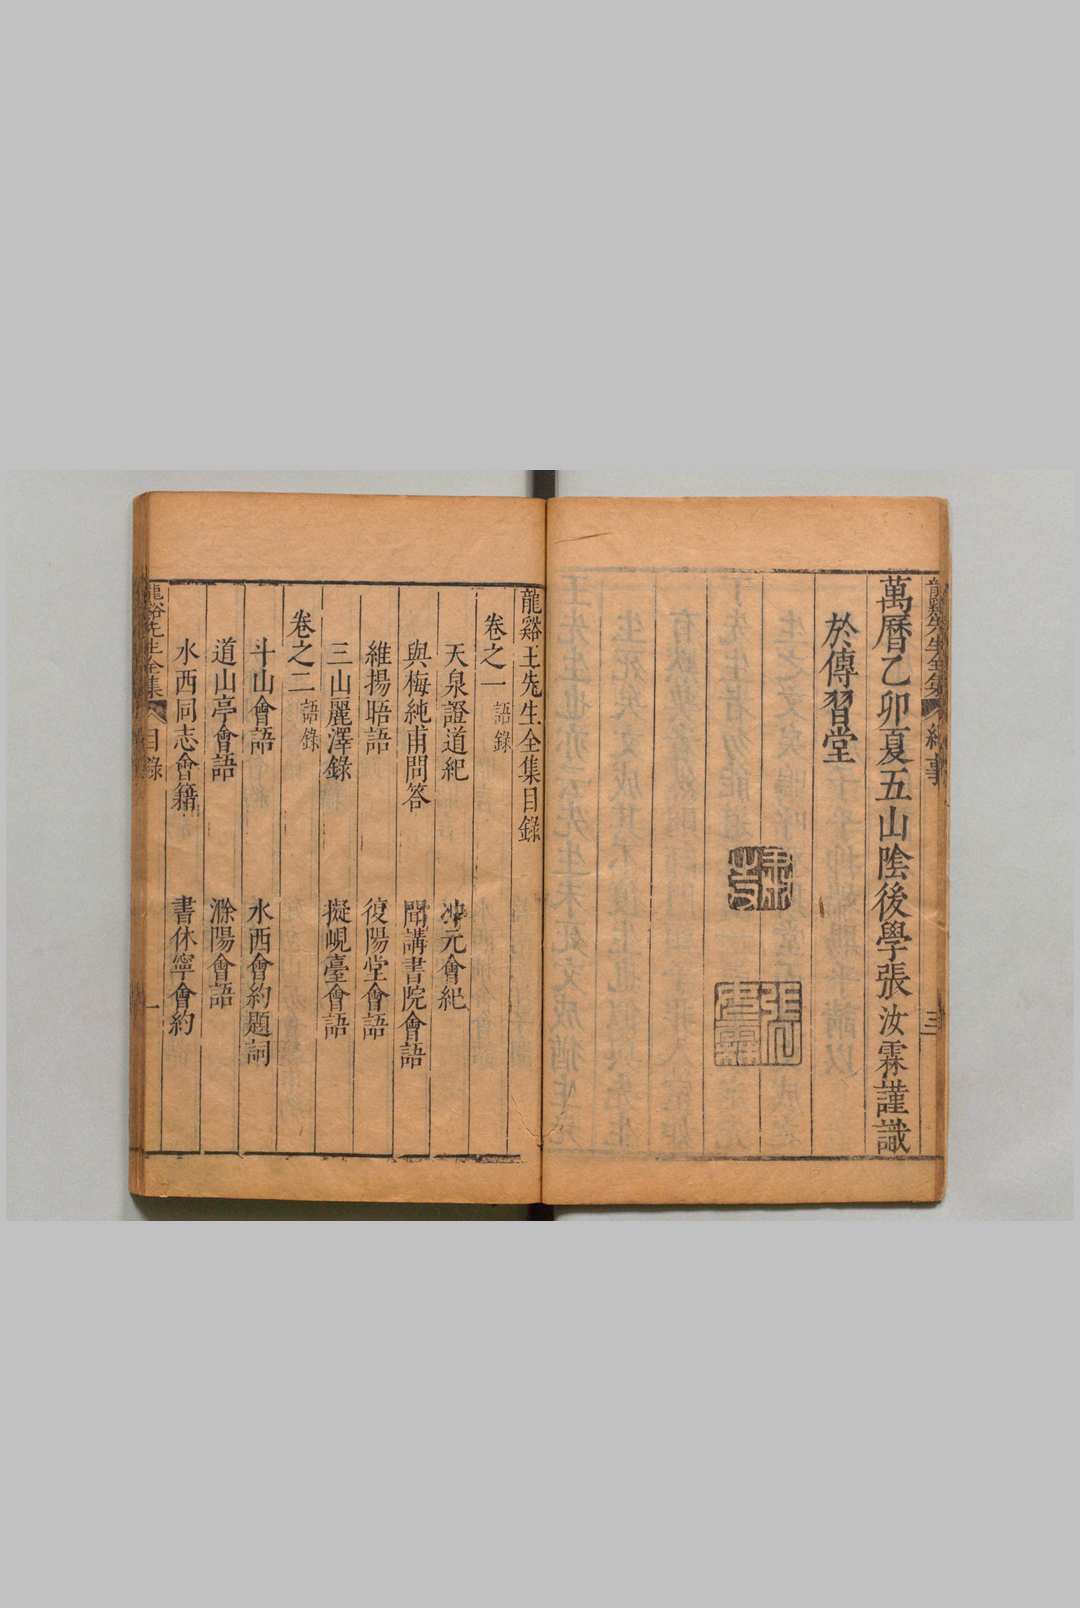 萬曆乙卯夏五山陰後學張汝霖謹識
於傳習堂
龍谿王先生全集目錄
卷之一 語錄
天泉證道紀 冲元會紀
與梅純甫問答 聞講書院會語
維揚晤語 復陽堂會語
三山麗澤錄 擬峴臺會語
卷之二 語錄
斗山會語 水西會約題詞
道山亭會語 滁陽會語
水西同志會籍 書休寧會約
龍谿先生全集 目錄 一